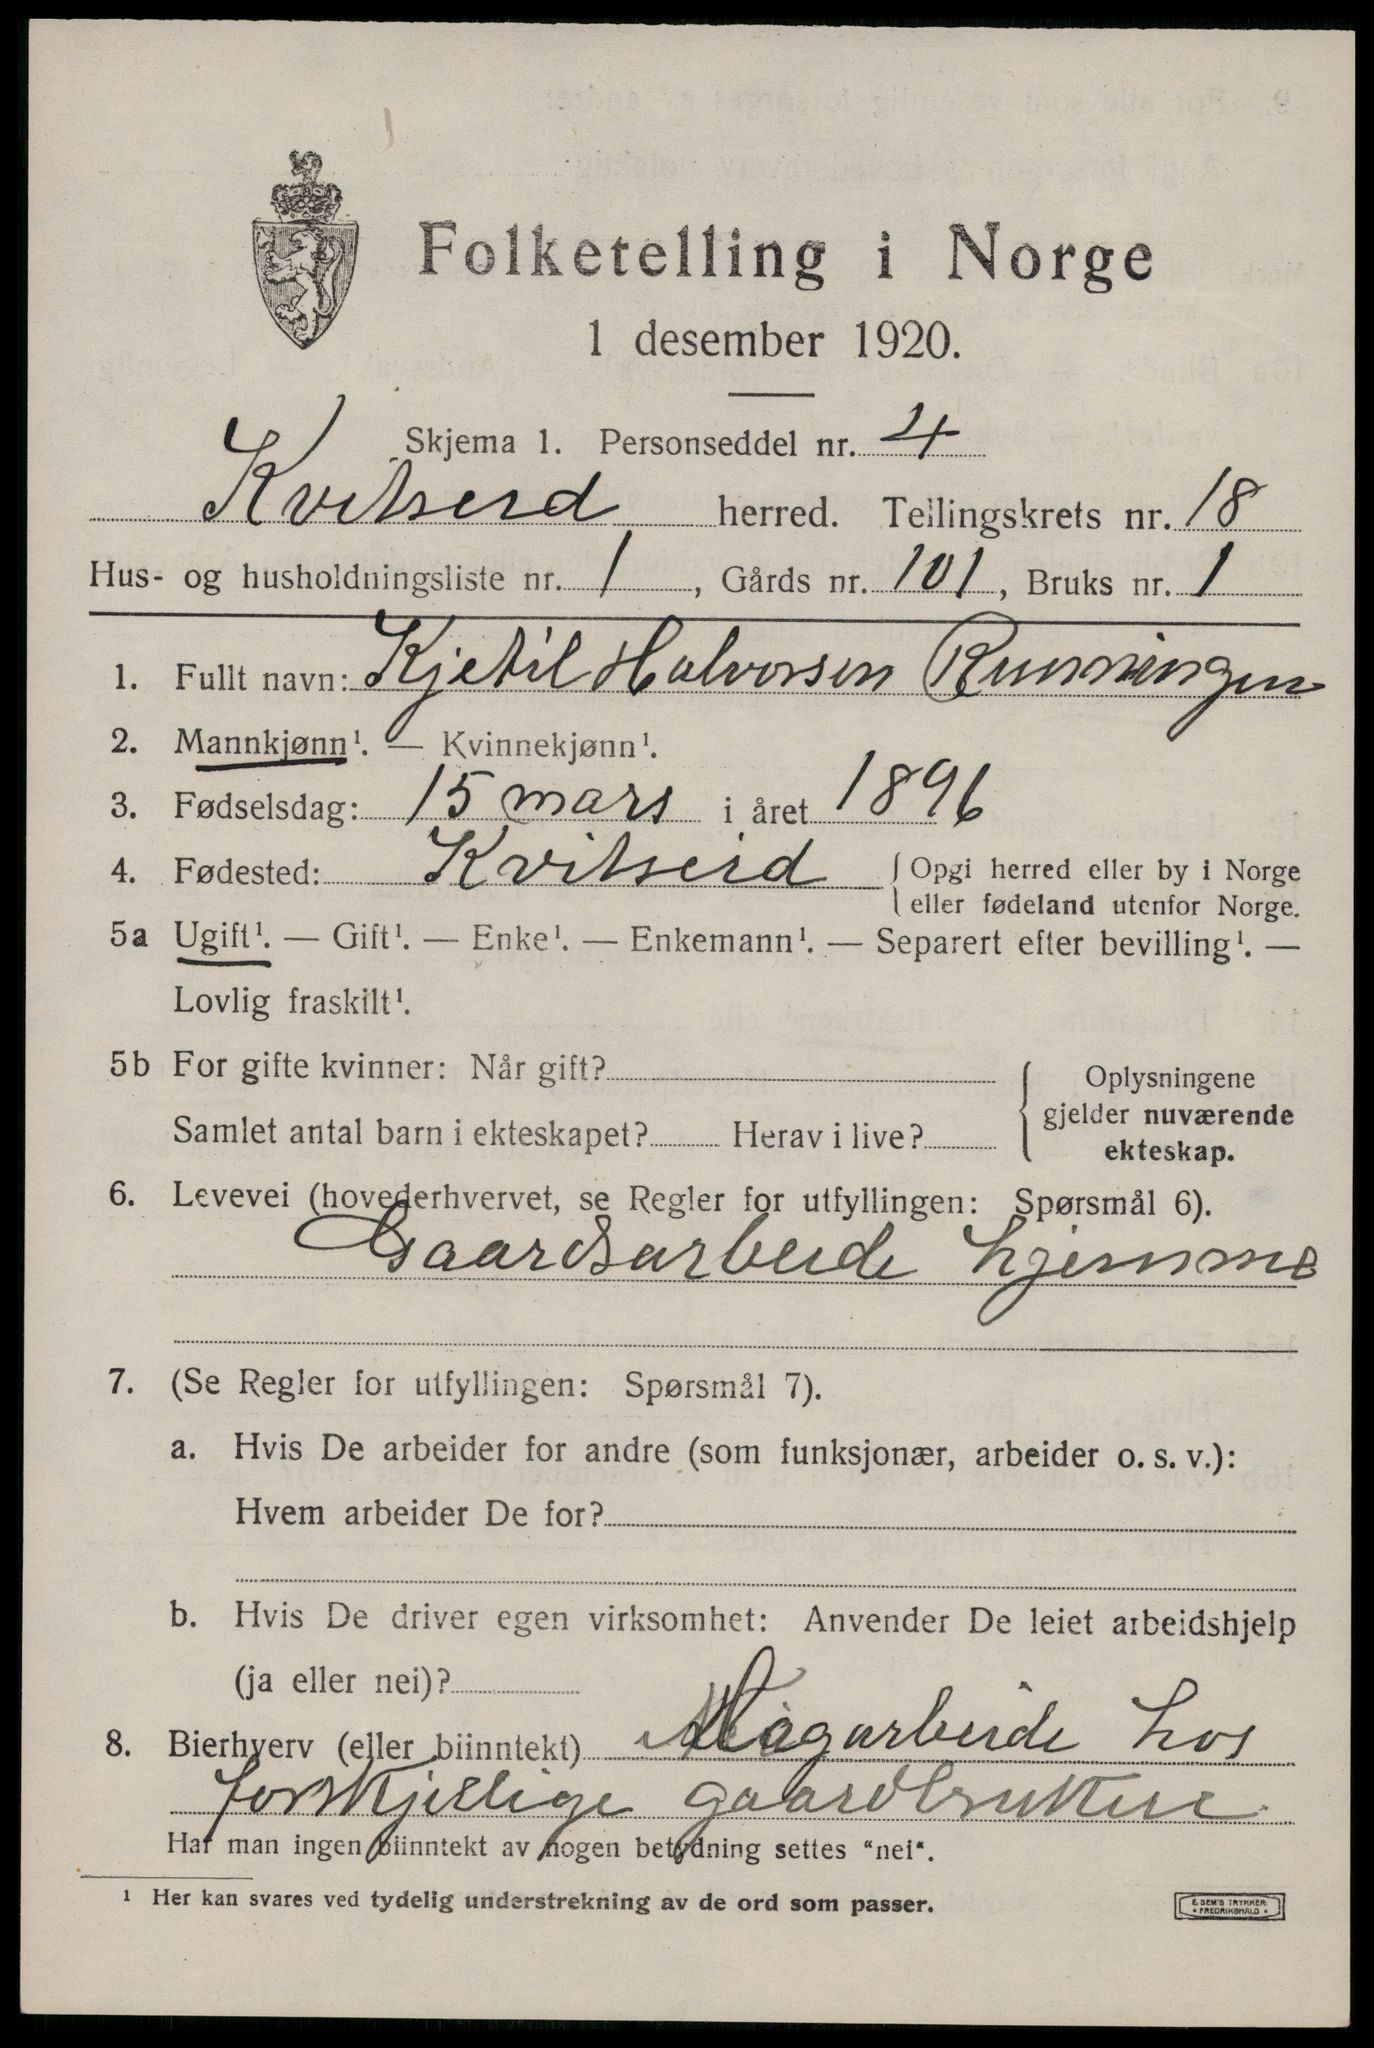 Folketelling i Norge
1 desember 1920.
Skjema 1. Personseddel nr. 4
Kvitseid herred. Tellingskrets nr. 18
Hus- og husholdningsliste nr. 1, Gårds nr. 101, Bruks nr. 1
1. Fullt navn: Kjetil Halvorsen Runningen
2. Mannkjønn¹. — Kvinnekjønn¹.
3. Fødselsdag: 15 mars i året 1896
4. Fødested: Kvitseid { Opgi herred eller by i Norge
eller fødeland utenfor Norge.
5a Ugift¹. — Gift¹. — Enke¹. — Enkemann¹. — Separert efter bevilling¹. —
Lovlig fraskilt¹.
5b For gifte kvinner: Når gift?
Samlet antal barn i ekteskapet? Herav i live?
{ Oplysningene
gjelder nuværende
ekteskap.
6. Levevei (hovederhvervet, se Regler for utfyllingen: Spørsmål 6).
Gaardsarbeide hjemme
7. (Se Regler for utfyllingen: Spørsmål 7).
a. Hvis De arbeider for andre (som funksjonær, arbeider o. s. v.):
Hvem arbeider De for?
b. Hvis De driver egen virksomhet: Anvender De leiet arbeidshjelp
(ja eller nei)?
8. Bierhverv (eller biinntekt) hos
forskjellige gaardbrukere
Har man ingen biinntekt av nogen betydning settes "nei".
¹ Her kan svares ved tydelig understrekning av de ord som passer.
E. SEM'S TRYKKERI
• FREDRIKSHALD •